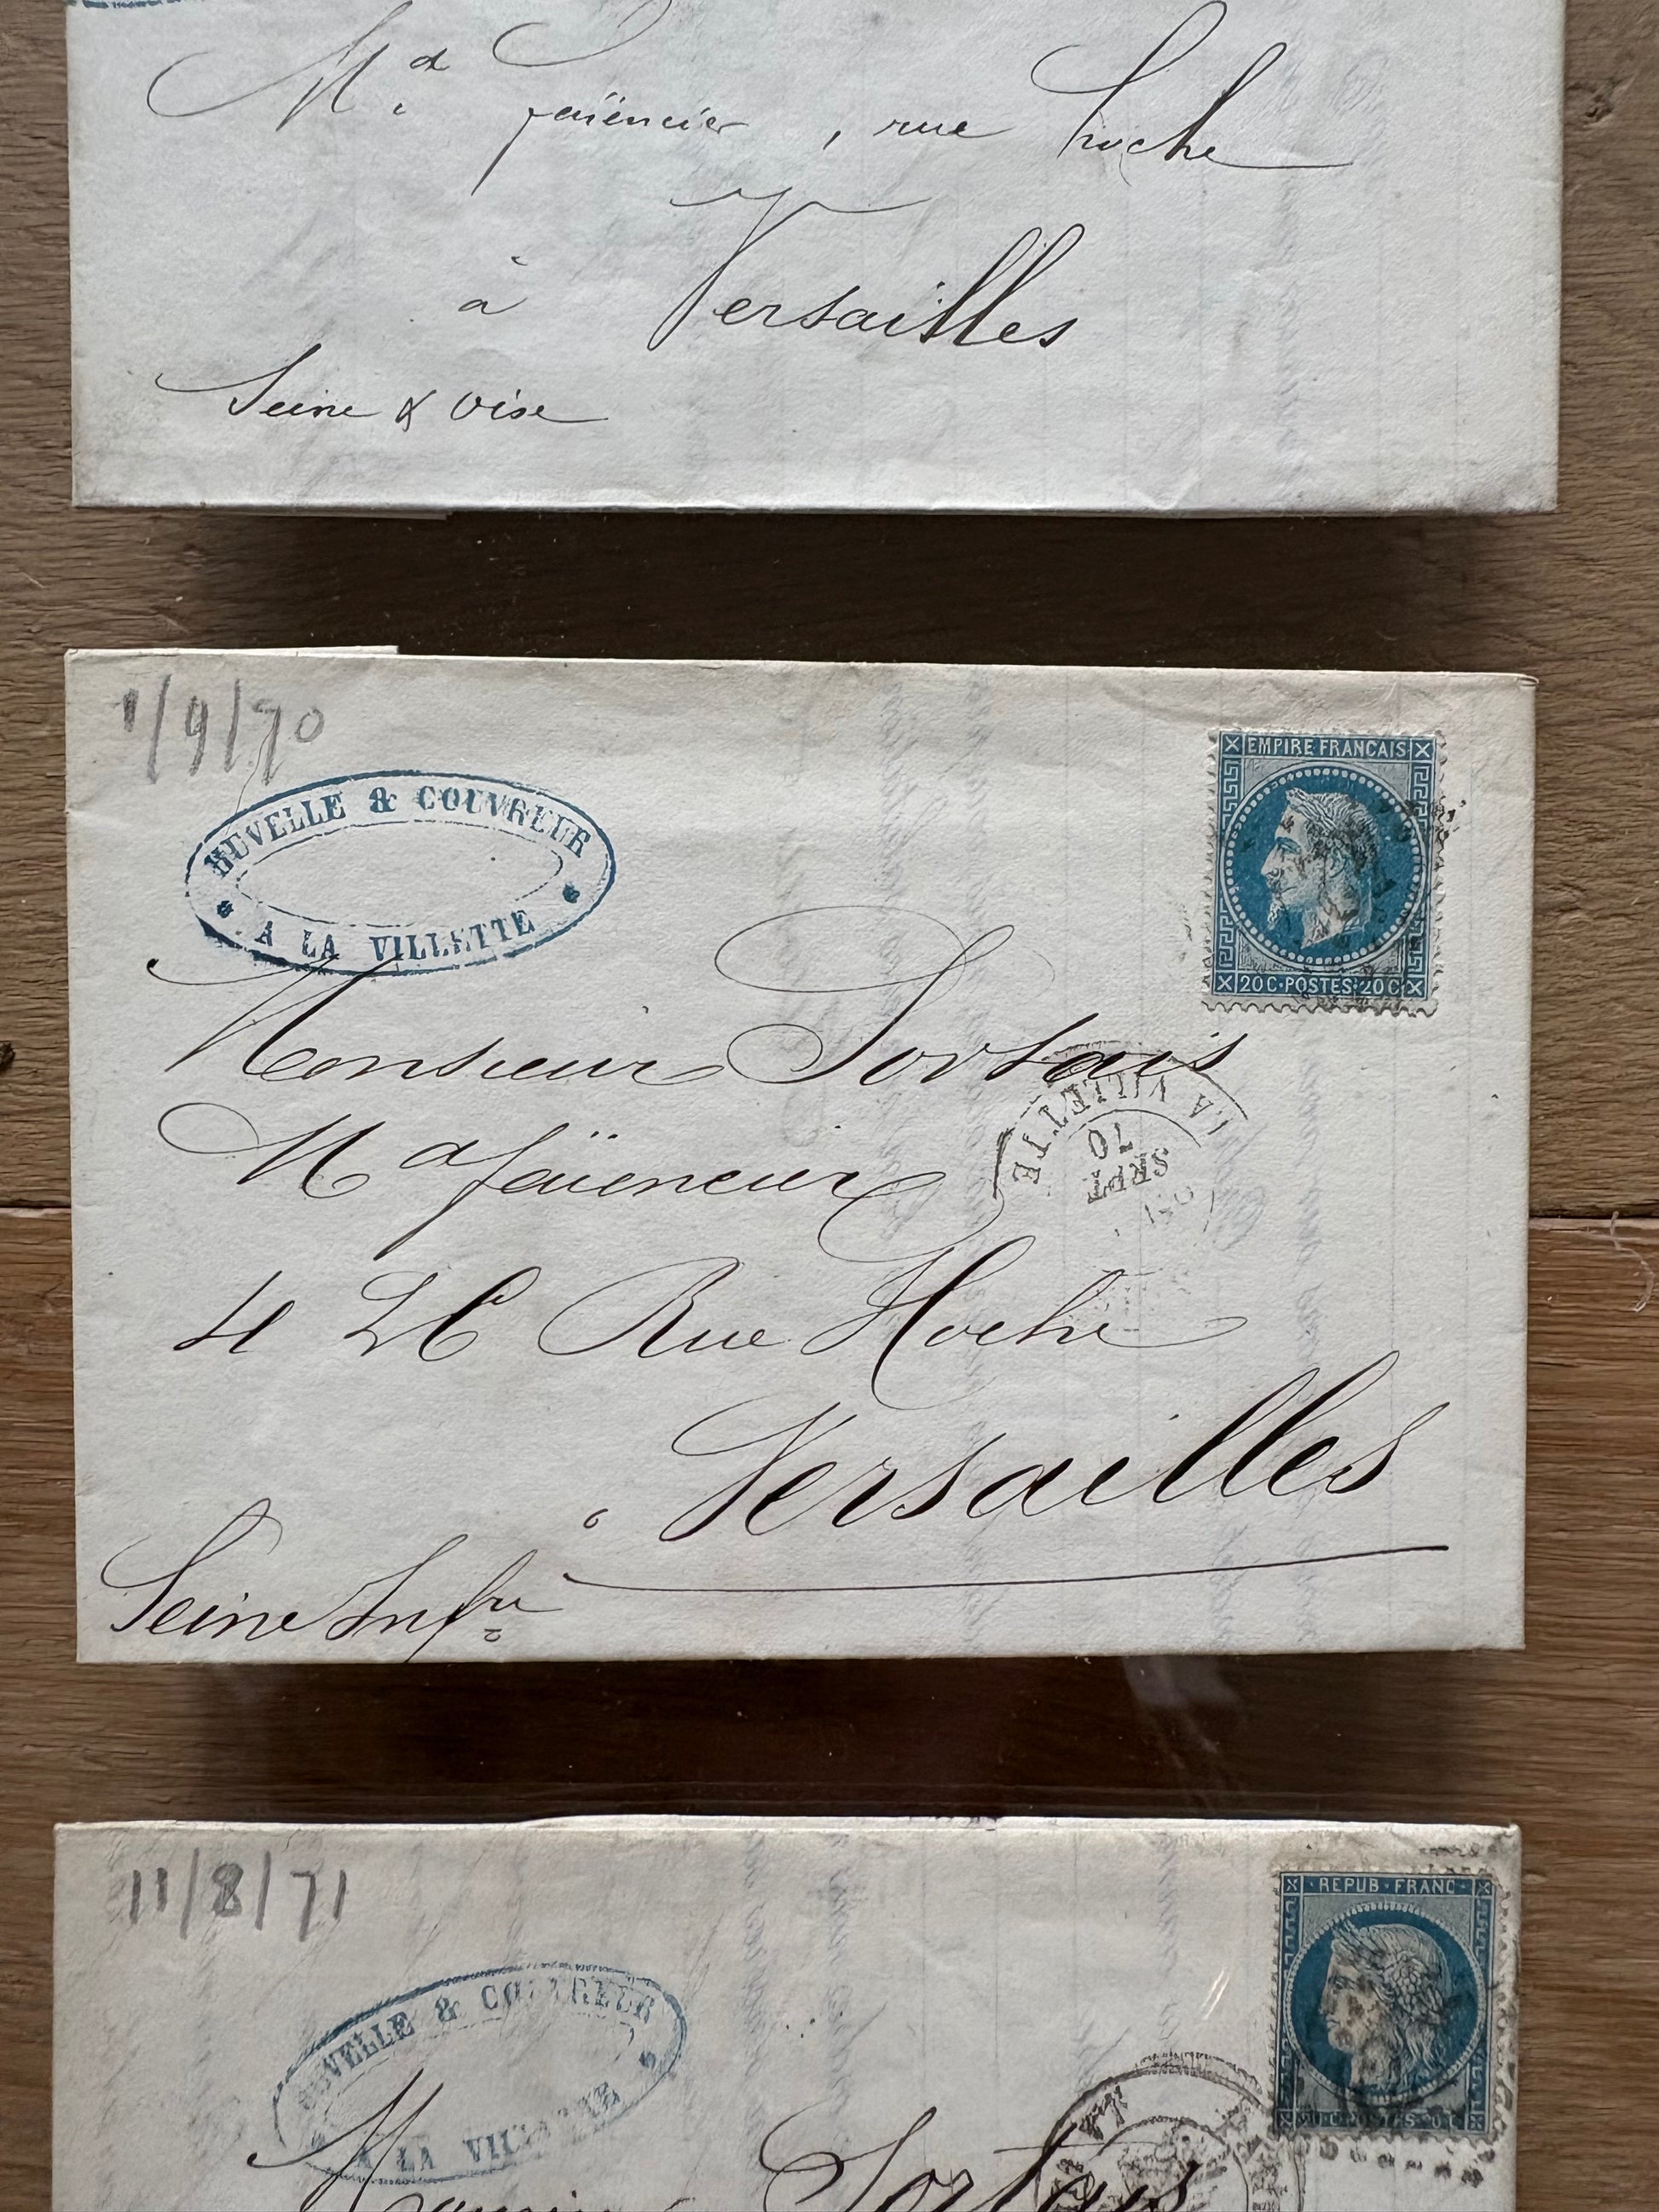 Md faïencier, rue Hoche
à Versailles
Seine & Oise
1/9/70
HUVELLE & COUVREUR
A LA VILLETTE
EMPIRE FRANCAIS
20 C · POSTES · 20 C
Monsieur Sortais
LA VILLETTE
SEPT
70
Md faïencier
4 Rue Hoche
à Versailles
Seine Infre
11/8/71
HUVELLE & COUVREUR
A LA VILLETTE
REPUB · FRANC
20 C · POSTES · 20 C
Sortais